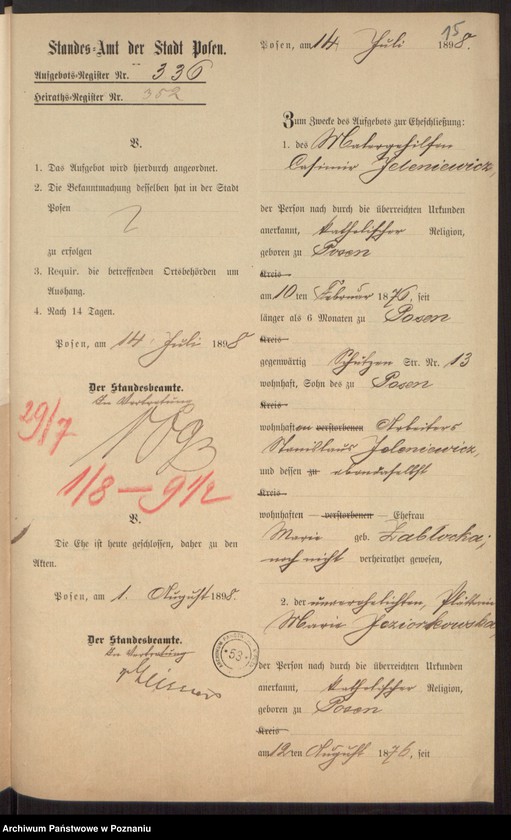 15
Standes-Amt der Stadt Posen.
Aufgebots-Register Nr. 336
Heiraths-Register Nr. 352
V.
1. Das Aufgebot wird hierdurch angeordnet.
2. Die Bekanntmachung desselben hat in der Stadt
Posen
zu erfolgen
3. Requir. die betreffenden Ortsbehörden um
Aushang.
4. Nach 14 Tagen.
Posen, am 14. Juli 1898
Der Standesbeamte.
In Vertretung
29/7
1/8 — 9 1/2
V.
Die Ehe ist heute geschlossen, daher zu den
Akten.
Posen, am 1. August 1898.
Der Standesbeamte.
In Vertretung
53
Posen, am 14. Juli 1898.
Zum Zwecke des Aufgebots zur Eheschließung:
1. des Malergehilfen
Casimir Jeleniewicz,
der Person nach durch die überreichten Urkunden
anerkannt, katholischer Religion,
geboren zu Posen
Kreis
am 10ten Februar 1876, seit
länger als 6 Monaten zu Posen
Kreis
gegenwärtig Schützen Str. Nr. 13
wohnhaft, Sohn des zu Posen
Kreis
wohnhaften verstorbenen Arbeiters
Stanislaus Jeleniewicz,
und dessen zu ebendaselbst
Kreis
wohnhaften — verstorbenen — Ehefrau
Marie geb. Zablocka;
noch nicht verheirathet gewesen,
2. der unverehelichten, Plätterin
Marie Jeziorkowska,
der Person nach durch die überreichten Urkunden
anerkannt, katholischer Religion,
geboren zu Posen
Kreis
am 12ten August 1876, seit
Archiwum Państwowe w Poznaniu
szukajwarchiwach.pl